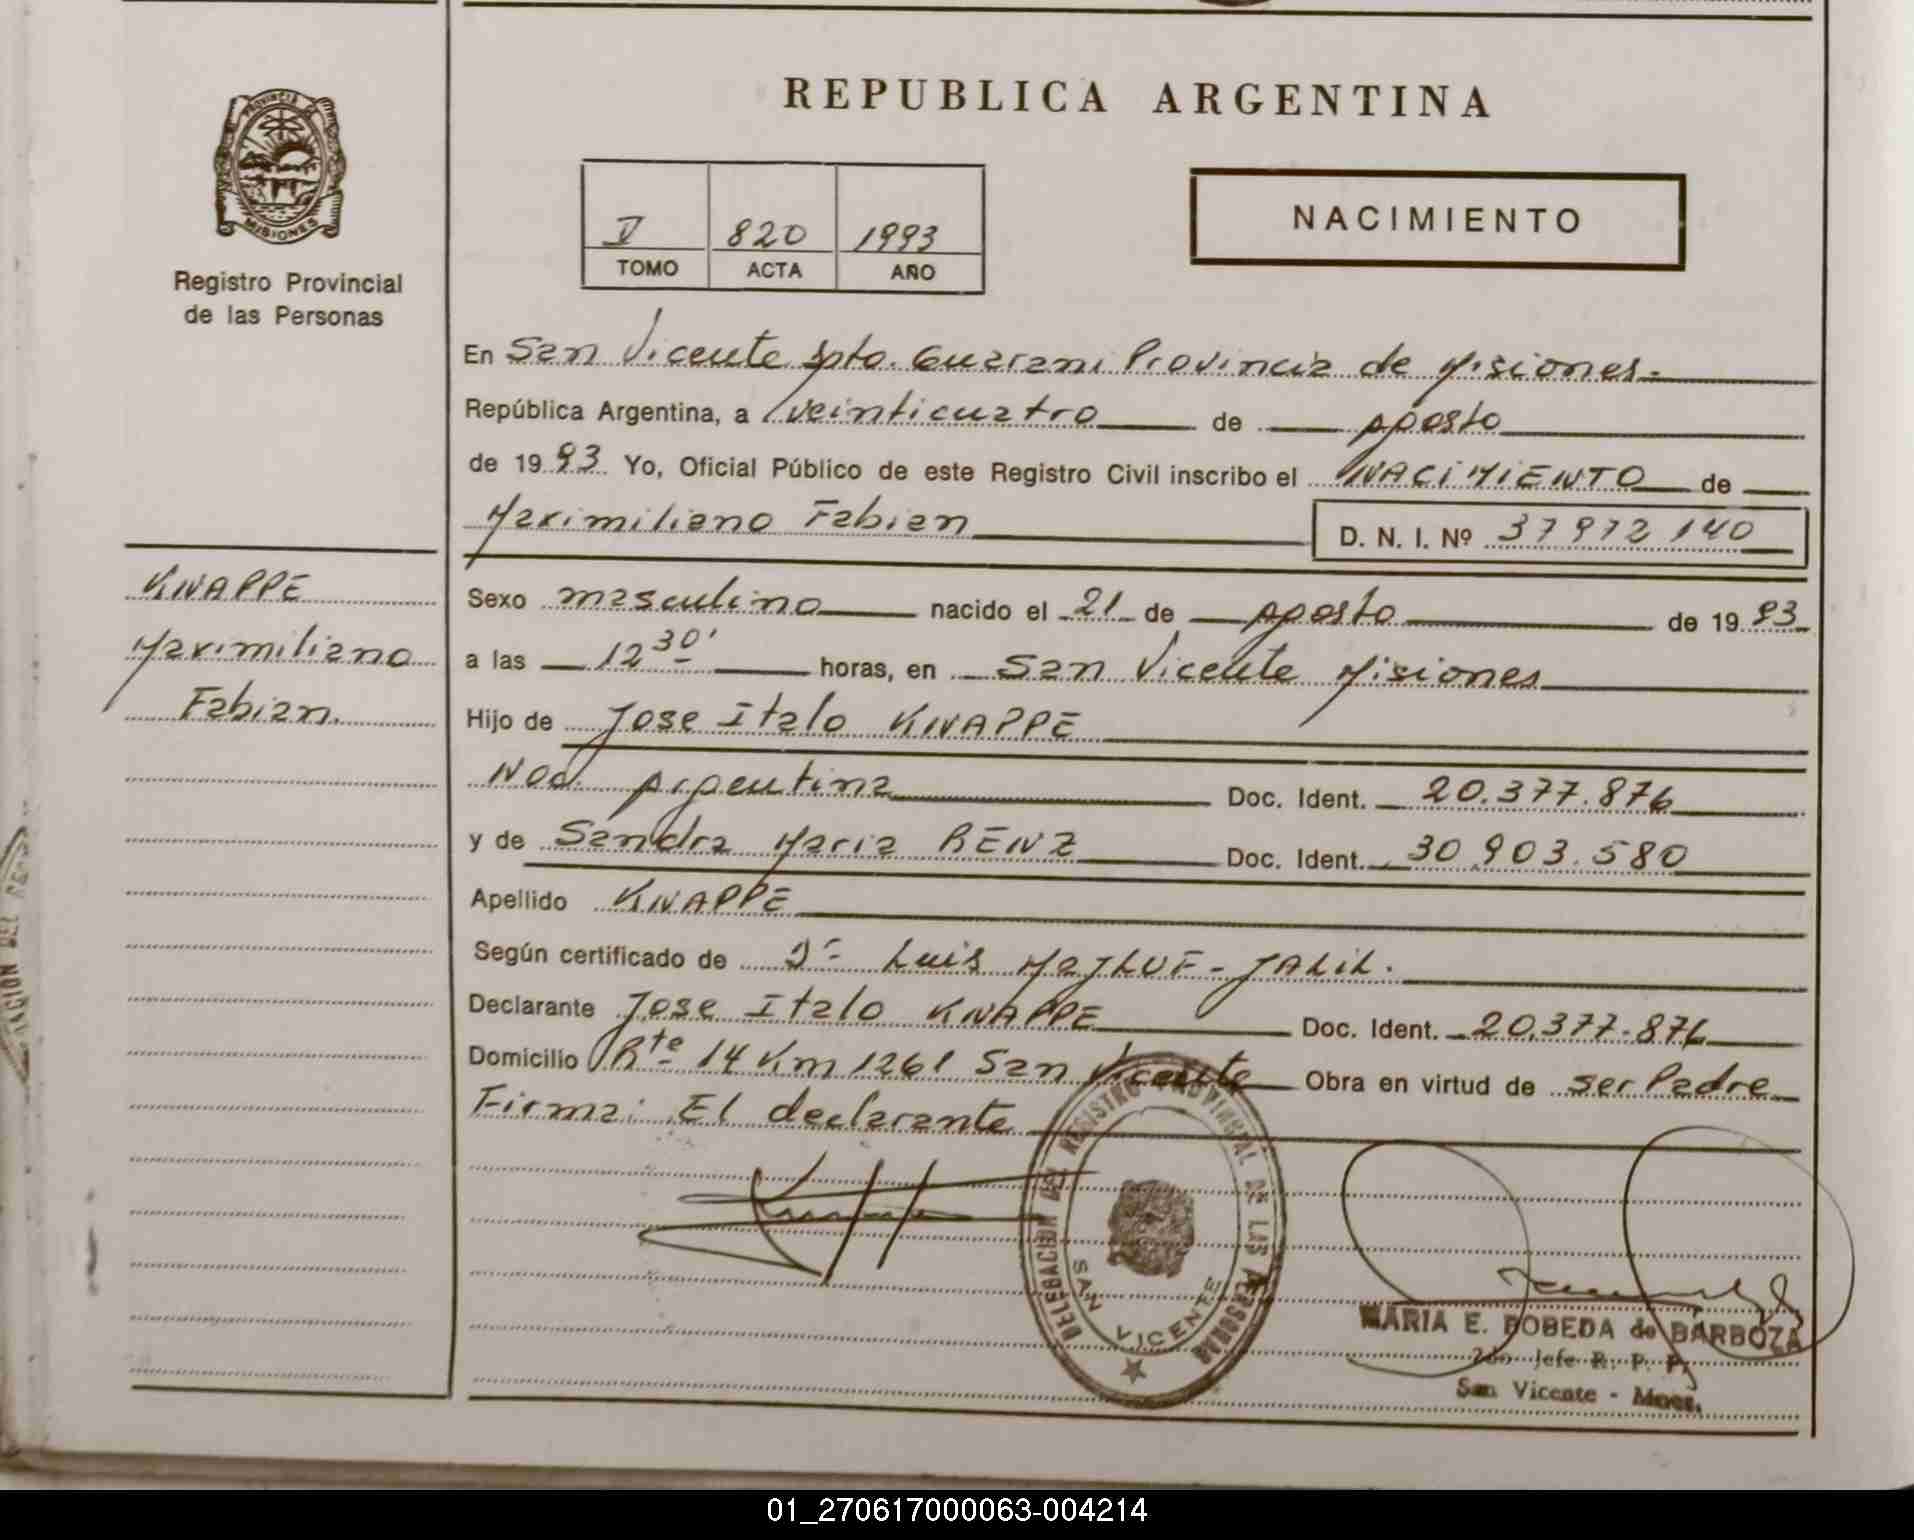 REPUBLICA ARGENTINA
PROVINCIA DE
MISIONES
Registro Provincial
de las Personas
V 820 1993
TOMO ACTA AÑO
NACIMIENTO
En San Vicente Dpto. Guarani Provincia de Misiones.
República Argentina, a veinticuatro de agosto
de 19 93 Yo, Oficial Público de este Registro Civil inscribo el NACIMIENTO de
Maximiliano Fabian D. N. I. Nº 37972140
KNAPPE
Maximiliano
Fabian.
Sexo masculino nacido el 21 de agosto de 19 93
a las 12 30' horas, en San Vicente Misiones
Hijo de Jose Italo KNAPPE
Nac. Argentina Doc. Ident. 20.377.876
y de Sandra Maria RENZ Doc. Ident. 30.903.580
Apellido KNAPPE
Según certificado de Dr Luis MAJLUF-JALIL.
Declarante Jose Italo KNAPPE Doc. Ident. 20.377.876
Domicilio Rte 14 Km 1261 San Vicente Obra en virtud de ser Padre
Firma: El declarante
DELEGACION DEL REGISTRO PROVINCIAL DE LAS PERSONAS
SAN VICENTE
MARIA E. BOBEDA de BARBOZA
2do Jefe R. P. P.
San Vicente - Mnes.
01_270617000063-004214